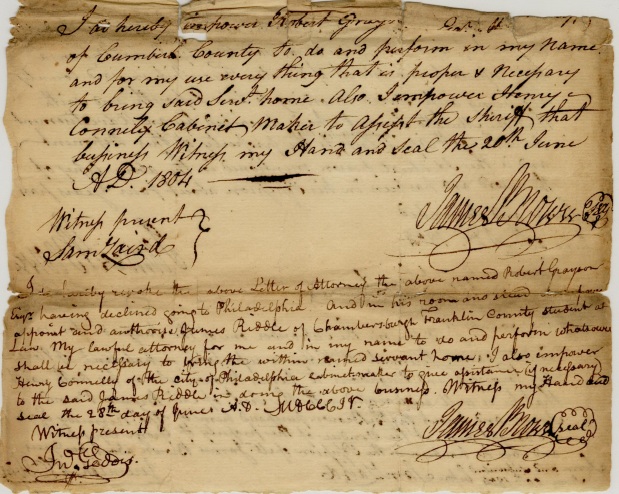 I do hereby empower Robert Grays
of Cumberl. County to do and perform in my Name
and for my use every thing that is proper & Necessary
to bring said Servt. home. Also I empower Henry
Connelly Cabinet Maker to assist the sheriff that
business Witness my Hand and seal this 20th June
A.D. 1804
Witness present
Saml Laird
James Moore
I do hereby revoke the above Letter of Attorney the above named Robert Grayson
Esqr. having declined going to Philadelphia And in his room and stead
appoint and authorise James Riddle of Chambersburgh Franklin County student at
Law. My lawful attorney for me and in my name to do and perform whatsoever
shall be necessary to bring the within named servant home, I also empower
Henry Connelly of the city of Philadelphia cabinetmaker to give assistance (if necessary)
to the said James Riddle in doing the above business. Witness my Hand and
seal the 28th day of June A.D. MDCCCIV.
Witness present
Jno. Geddis
James Moore seal